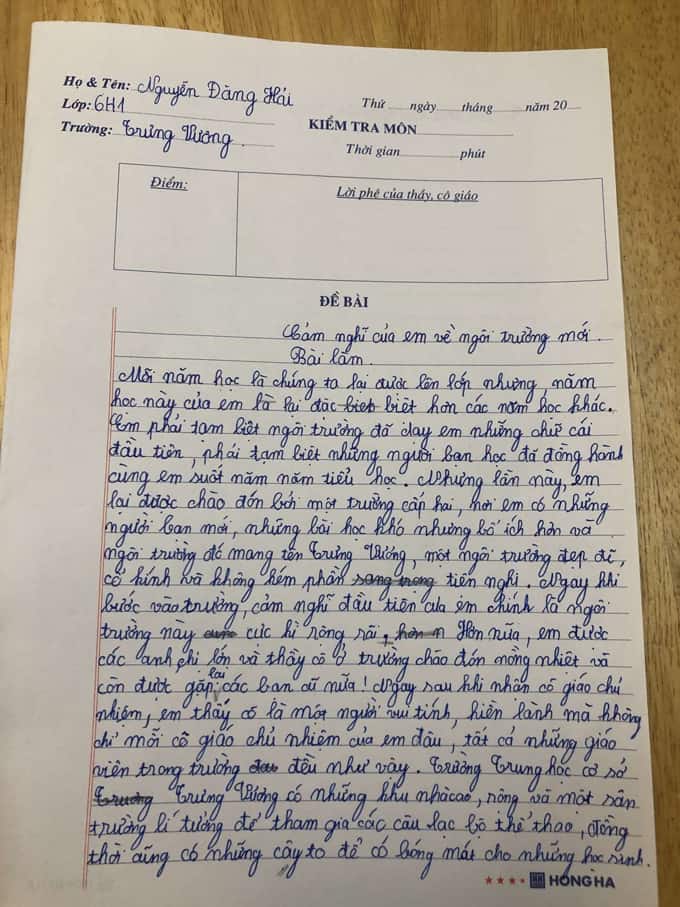 Họ & Tên: Nguyễn Đăng Hải
Lớp: 6H1
Trường: Trưng Vương.
Thứ ngày tháng năm 20
KIỂM TRA MÔN
Thời gian phút
Điểm:
Lời phê của thầy, cô giáo
ĐỀ BÀI
Cảm nghĩ của em về ngôi trường mới.
Bài làm.
Mỗi năm học là chúng ta lại được lên lớp nhưng, năm
học này của em là lại đặc biêt biệt hơn các năm học khác.
Em phải tạm biệt ngôi trường đã dạy em những chữ cái
đầu tiên, phải tạm biệt những người bạn học đã đồng hành
cùng em suốt năm năm tiểu học. Nhưng lần này, em
lại được chào đón bởi một trường cấp hai, nơi em có những
người bạn mới, những bài học khó nhưng bổ ích hơn và
ngôi trường đó mang tên Trưng Vương, một ngôi trường đẹp đẽ,
cổ kính và không kém phần sang trọng tiện nghi. Ngay khi
bước vào trường, cảm nghĩ đầu tiên của em chính là ngôi
trường này cực kì rộng rãi, hơn n Hơn nữa, em được
các anh, chị lớn và thầy cô ở trường chào đón nồng nhiệt và
còn được gặp lại các bạn cũ nữa! Ngay sau khi nhận cô giáo chủ
nhiệm, em thấy cô là một người vui tính, hiền lành mà không
chỉ mỗi cô giáo chủ nhiệm của em đâu, tất cả những giáo
viên trong trường đều như vậy. Trường Trung học cơ sở
Truong Trưng Vương có những khu nhà cao, rộng và một sân
trường lí tưởng để tham gia các câu lạc bộ thể thao, đồng
thời cũng có những cây to để có bóng mát cho những học sinh.
HỒNG HÀ